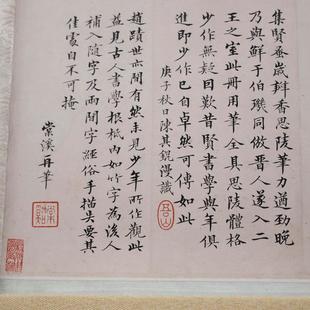 集賢蚤歲瓣香思陵筆力遒勁晚
乃與鮮于伯機同做晉人遂入二
王之室此冊用筆全具思陵體格
少作無疑因歎昔賢書學與年俱
進即少作已自卓然可傳如此
庚子秋日陳其錕漫識
趙蹟世亦閒有然未見少年所作觀此
益見古人書學根柢內如竹字為後人
補入隨字及兩閒字經俗手描失要其
佳處自不可掩
棠溪再筆